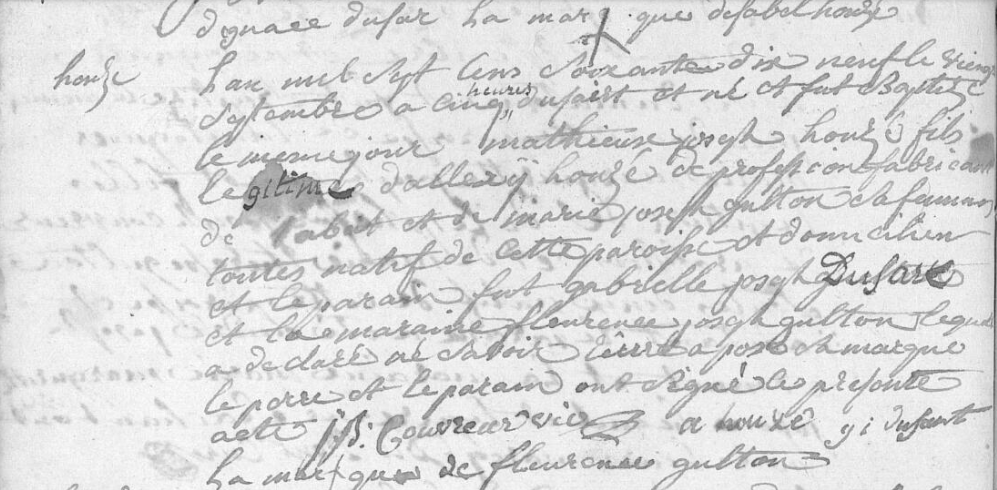 dignace dufar La mar que disabel houzé
houzé
Lan mil sept Cens Soixante dix neuf le vieng
Septembre a Cinq heures du part et né et fut Baptizé
le meme jour mathieux josph houzé fils
legitime d'allexÿ houzé de profession fabricant
de tabat et de marie joseph gulton Sa femme
toutes natif de Cette paroise et domicilien
et le parain fut gabrielle joseph Dufart
et la maraine fleurence joseph gulton lequel
a declaré né Savoir ecrire a posé Sa marque
le perre et le parain ont Signé le presente
acte j: B: Couvreur vic a houzé g i dufart
La mar que de fleurence gulton